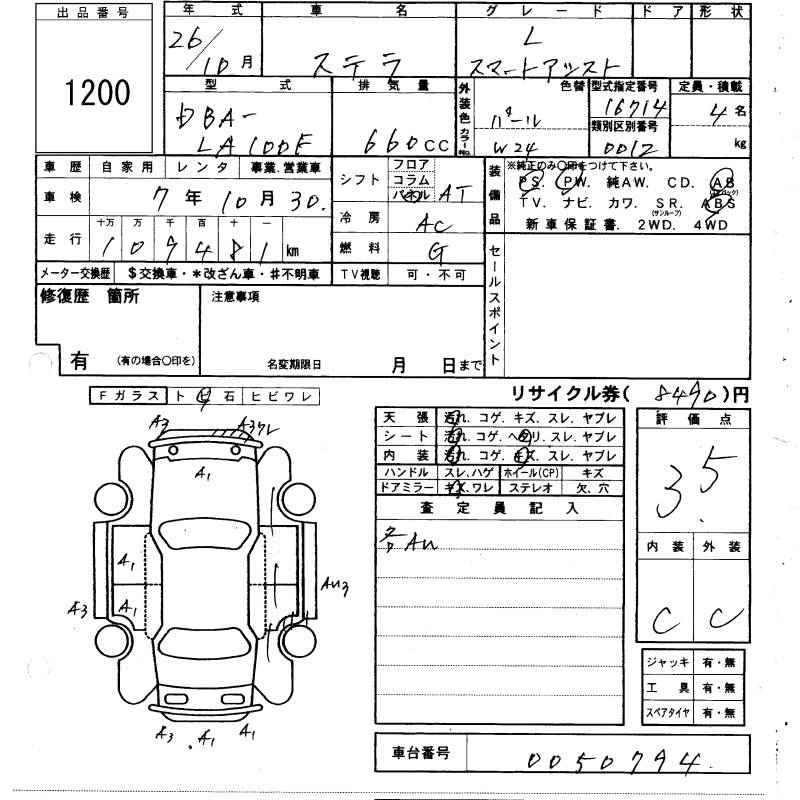 出品番号
1200
年式
26/10月
車名
ステラ
グレード
L
スマートアシスト
ドア
形状
型式
DBA-
LA100F
排気量
660CC
外装色
色替
パール
カラーNo.
W24
型式指定番号
16714
類別区別番号
0012
定員・積載
4名
kg
車歴
自家用
レンタ
事業.営業車
車検
7年10月30.
走行
十万 万 千 百 十 一
1 0 9 4 8 1 km
メーター交換歴
$交換車・*改ざん車・#不明車
シフト
フロア
コラム
パネル
AT
冷房
AC
燃料
G
TV視聴
可・不可
装備品
※純正のみ〇印をつけて下さい。
PS. PW. 純AW. CD. AB
(エアバック)
TV. ナビ. カワ. SR. ABS
(サンルーフ)
新車保証書. 2WD. 4WD
セールスポイント
修復歴 箇所
有
(有の場合〇印を)
注意事項
名変期限日 月 日まで
リサイクル券( 8490 )円
Fガラス
トビ石
ヒビワレ
A3
A3ワレ
A1
A1
A1
A3
AU3
A3
A1
A1
天張 汚れ. コゲ. キズ. スレ. ヤブレ
シート 汚れ. コゲ. ヘタリ. スレ. ヤブレ
内装 汚れ. コゲ. キズ. スレ. ヤブレ
ハンドル スレ.ハゲ ホイール(CP) キズ
ドアミラー キズ.ワレ ステレオ 欠.穴
査定員記入
各AU
評価点
3.5
内装
外装
C
C
ジャッキ 有・無
工具 有・無
スペアタイヤ 有・無
車台番号
0050794.